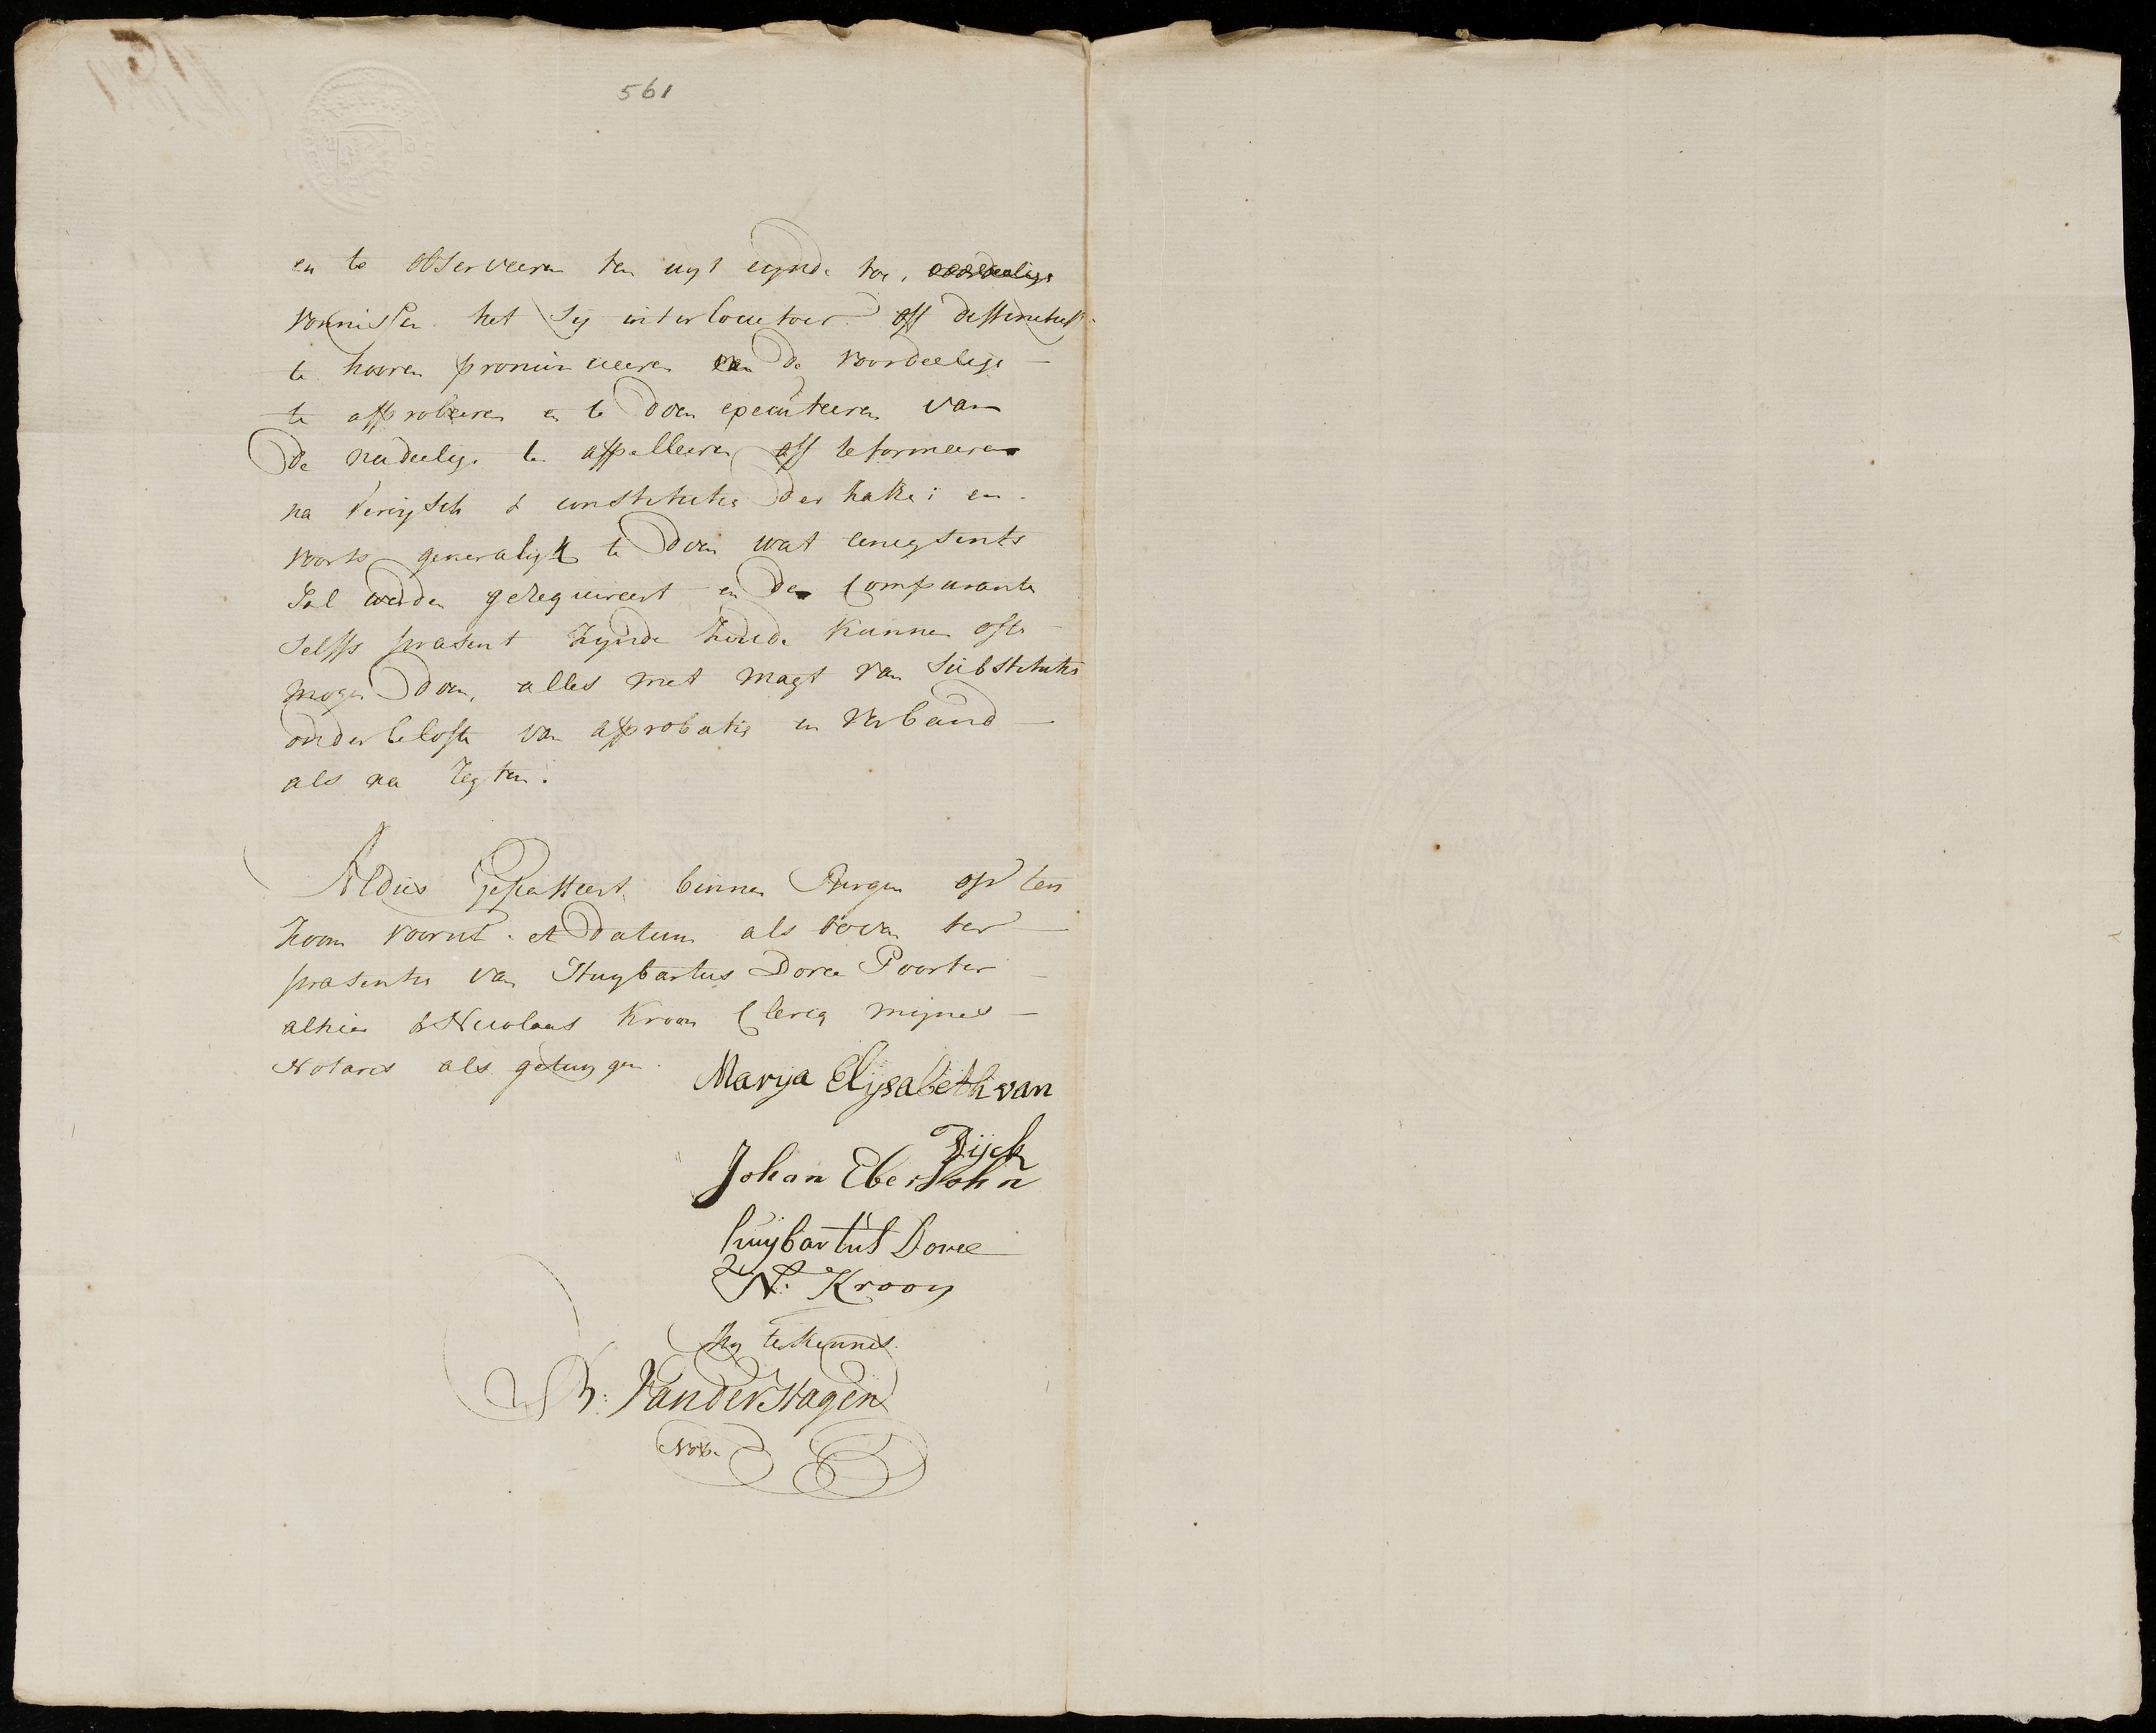 561
en te observeeren ten uyt eynde toe,
vonnissen het sij interlocutoir off diffinitief
te hooren pronuncieeren de voordeelige
te approbeeren en te doen executeeren van
de nadeelige te appelleeren off reformeeren
na vereysch & constitutie der zake; en
voorts generalijk te doen wat eenigsints
sal werden gerequireert en de Comparante
selffs præsent zynde zoude kunnen ofte
mogen doen, alles met magt van substitutie
onder belofte van approbatie en verband
als na regten.
Aldus Gepasseert binnen Bergen op ten
zoom voornt. et datum als boven ter
præsentie van Huybartus Doree Poorter
alhier & Nicolaas Kroon Clercq mynes
Notaris als getuygen.
Marija Elijsabeth van
Dijck
Johan Ebersohn
huijbartus Doree
N: Kroon
My te kennes
B: Vander Hagen
Nots.